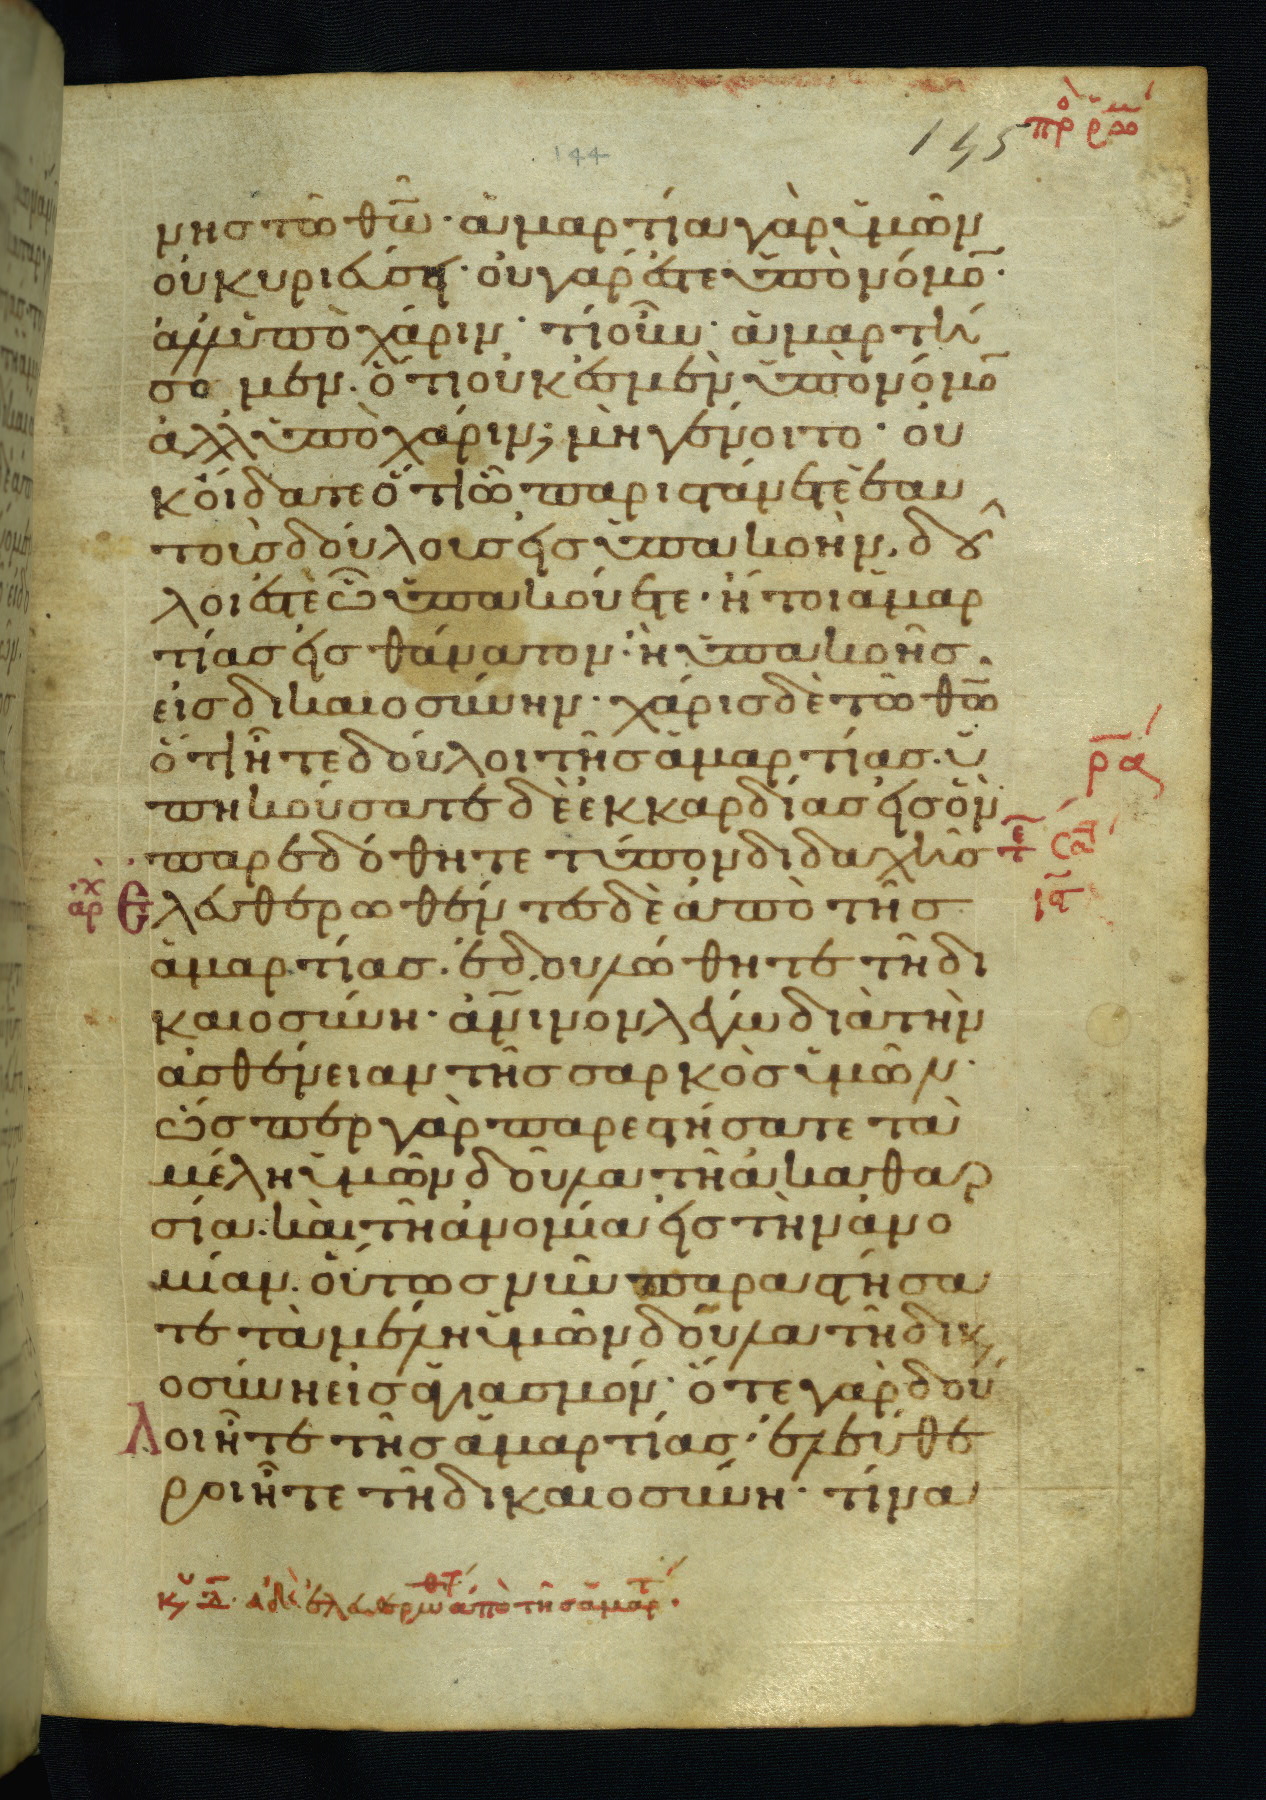 πρὸ ῥωμ
145
144
νης τῶ θω̅. ἁμαρτία γὰρ ὑμῶν
οὐ κυριεύσῃ· οὐ γάρ ἐστε ὑπὸ νόμο̅·
ἀλλ' ὑπὸ χάριν· τί οὖν· ἁμαρτή
σομεν. ὅτι οὐκ ἐσμὲν ὑπὸ νόμο̅
ἀλλ' ὑπὸ χάριν; μὴ γένοιτο· οὐ
κ οἴδατε ὅτι ὧ παριστάνετε ἑαυ
τοὺς δούλους εἰς ὑπακοὴν. δοῦ
λοι ἐστὲ ὧ ὑπακούετε· ἤτοι ἁμαρ
τίας εἰς θάνατον· ἢ ὑπακοῆς.
εἰς δικαιοσύνην· χάρις δὲ τῶ θω̅
ὅτι ἦτε δοῦλοι τῆς ἁμαρτίας. ὑ
πηκούσατε δὲ ἐκ καρδίας εἰς ὃν
παρεδόθητε τύπον διδαχῆς τε
Ἐλευθερωθέντες δὲ ἀπὸ τῆς
ἁμαρτίας. ἐδουλώθητε τῆ δι
καιοσύνη· ἀν̅ινον λέγω διὰ τὴν
ἀσθένειαν τῆς σαρκὸς ὑμῶν·
ὥσπερ γὰρ παρεστήσατε τὰ
μέλη ὑμῶν δοῦλα τῆ ἀκαθαρ
σία. καὶ τῆ ἀνομία εἰς τὴν ἀνο
μίαν. οὕτως νῦν παραστήσα
τε τὰ μέλη ὑμῶν δοῦλα τῆ δικ
οσύνη εἰς ἁγιασμόν· ὅτε γὰρ δοῦ
λοι ἦτε τῆς ἁμαρτίας· ἐλεύθε
ροι ἦτε τῆ δικαιοσύνη· τίνα
ἀρχ
ρα
κυ δ. ἀδε ἐλευθερωθτ ἀπὸ τῆς ἁμαρτ.